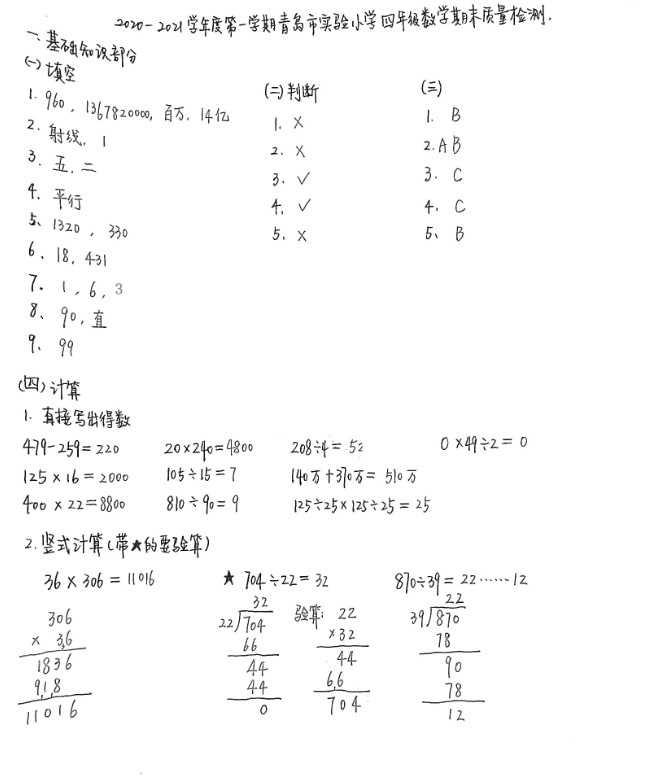 2020-2021学年度第一学期青岛市实验小学四年级数学期末质量检测.
一、基础知识部分
(一)填空
1. 960, 1367820000, 百万, 14亿
2. 射线, 1
3. 五, 二
4. 平行
5、1320, 330
6、18, 431
7. 1, 6, 3
8、90, 直
9、99
(二)判断
1. ×
2. ×
3. √
4. √
5. ×
(三)
1. B
2. AB
3. C
4. C
5. B
(四)计算
1. 直接写出得数
479-259=220 20×240=4800 208÷4=52 0×49÷2=0
125×16=2000 105÷15=7 140万+370万=510万
400×22=8800 810÷90=9 125÷25×125÷25=25
2. 竖式计算(带★的要验算)
36×306=11016 ★704÷22=32 870÷39=22……12
306
×36
1836
918
11016
32
22)704
66
44
44
0
验算: 22
×32
44
66
704
22
39)870
78
90
78
12